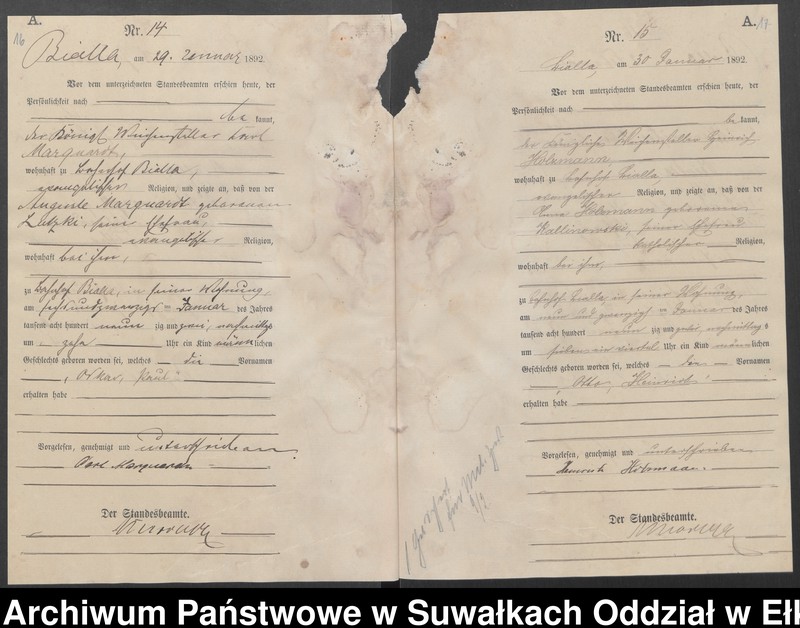 A.
16
Nr. 14
Bialla, am 29. Januar 1892.
Vor dem unterzeichneten Standesbeamten erschien heute, der
Persönlichkeit nach
be kannt,
der Königl. Weichensteller Karl
Marquardt,
wohnhaft zu Bahnhof Bialla,
evangelischer Religion, und zeigte an, daß von der
Auguste Marquardt geborenen
seiner Ehefrau,
evangelischer Religion,
wohnhaft bei ihm,
zu Bahnhof Bialla, in seiner Wohnung,
am sechsundzwanzigs= Januar des Jahres
tausend acht hundert neun zig und zwei, nachmittags
um zehn Uhr ein Kind männlichen
Geschlechts geboren worden sei, welches die Vornamen
Oskar, Paul
erhalten habe
Vorgelesen, genehmigt und unterschrieben
Karl Marquardt
Der Standesbeamte.
A.
17
Nr. 15
Bialla, am 30 Januar 1892.
Vor dem unterzeichneten Standesbeamten erschien heute, der
Persönlichkeit nach
be kannt,
der Königliche Weichensteller Heinrich
Holzmann,
wohnhaft zu Bahnhof Bialla,
evangelischer Religion, und zeigte an, daß von der
Holzmann geborenen
Kallinowski, seiner Ehefrau
katholischer Religion,
wohnhaft bei ihm,
zu Bahnhof Bialla in seiner Wohnung,
am neun und zwanzigs= Januar des Jahres
tausend acht hundert neun zig und zwei, nachmittag s
um sieben ein viertel Uhr ein Kind männlichen
Geschlechts geboren worden sei, welches den Vornamen
Otto, Heinrich
erhalten habe
Vorgelesen, genehmigt und unterschrieben
Heinrich Holzmann.
Der Standesbeamte.
Archiwum Państwowe w Suwałkach Oddział w Ełk